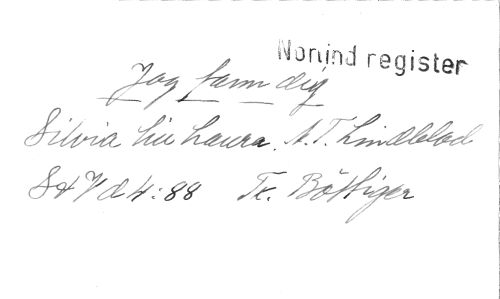 Norlind register
Jag fann dig
Silvia lilla Laura. A. T. Lindblad
S & V d 4:88 Tr. Böttiger